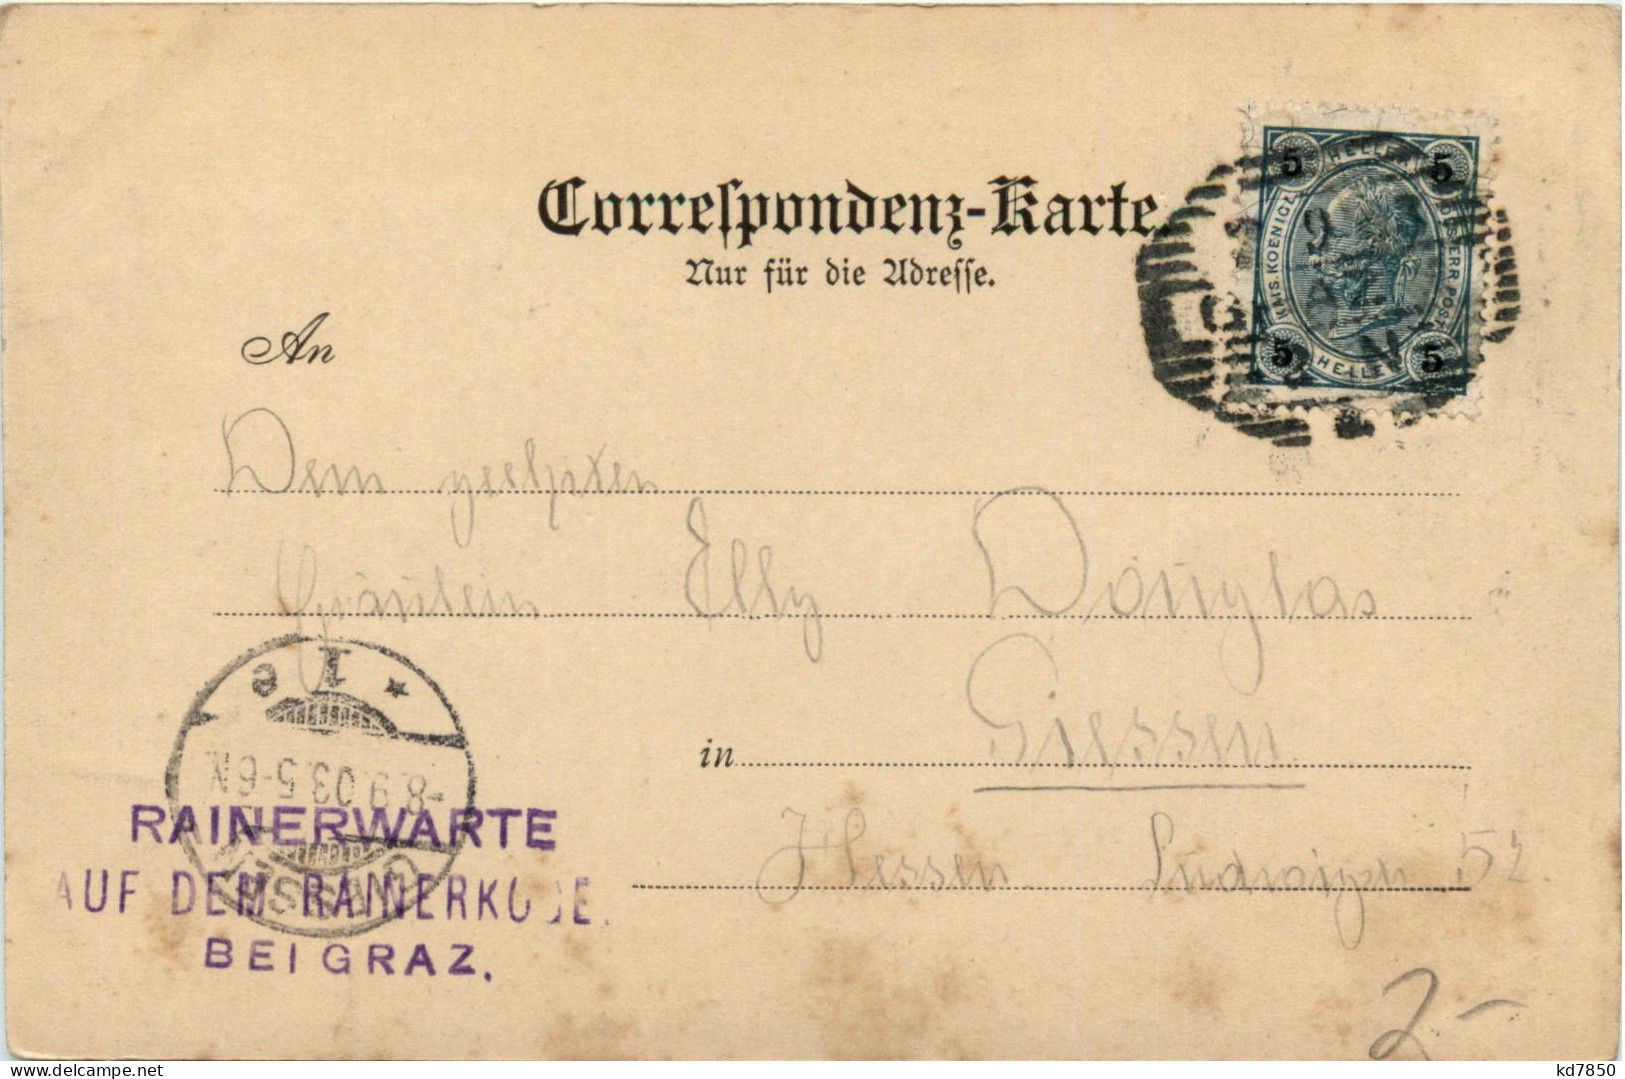 Correspondenz-Karte.
Nur für die Adresse.
5 HELLER 5
KAIS. KOENIGL. OESTERR. POST
5 HELLER 5
9
An
Dem geehrten
Fräulein Elly Douglas
in Giessen
Hessen Ludwigstr 52.
1 e
-8.9.03.5-6N
GIESSEN
RAINERWARTE
AUF DEM RAINERKOGEL
BEI GRAZ.
2-
kd7850